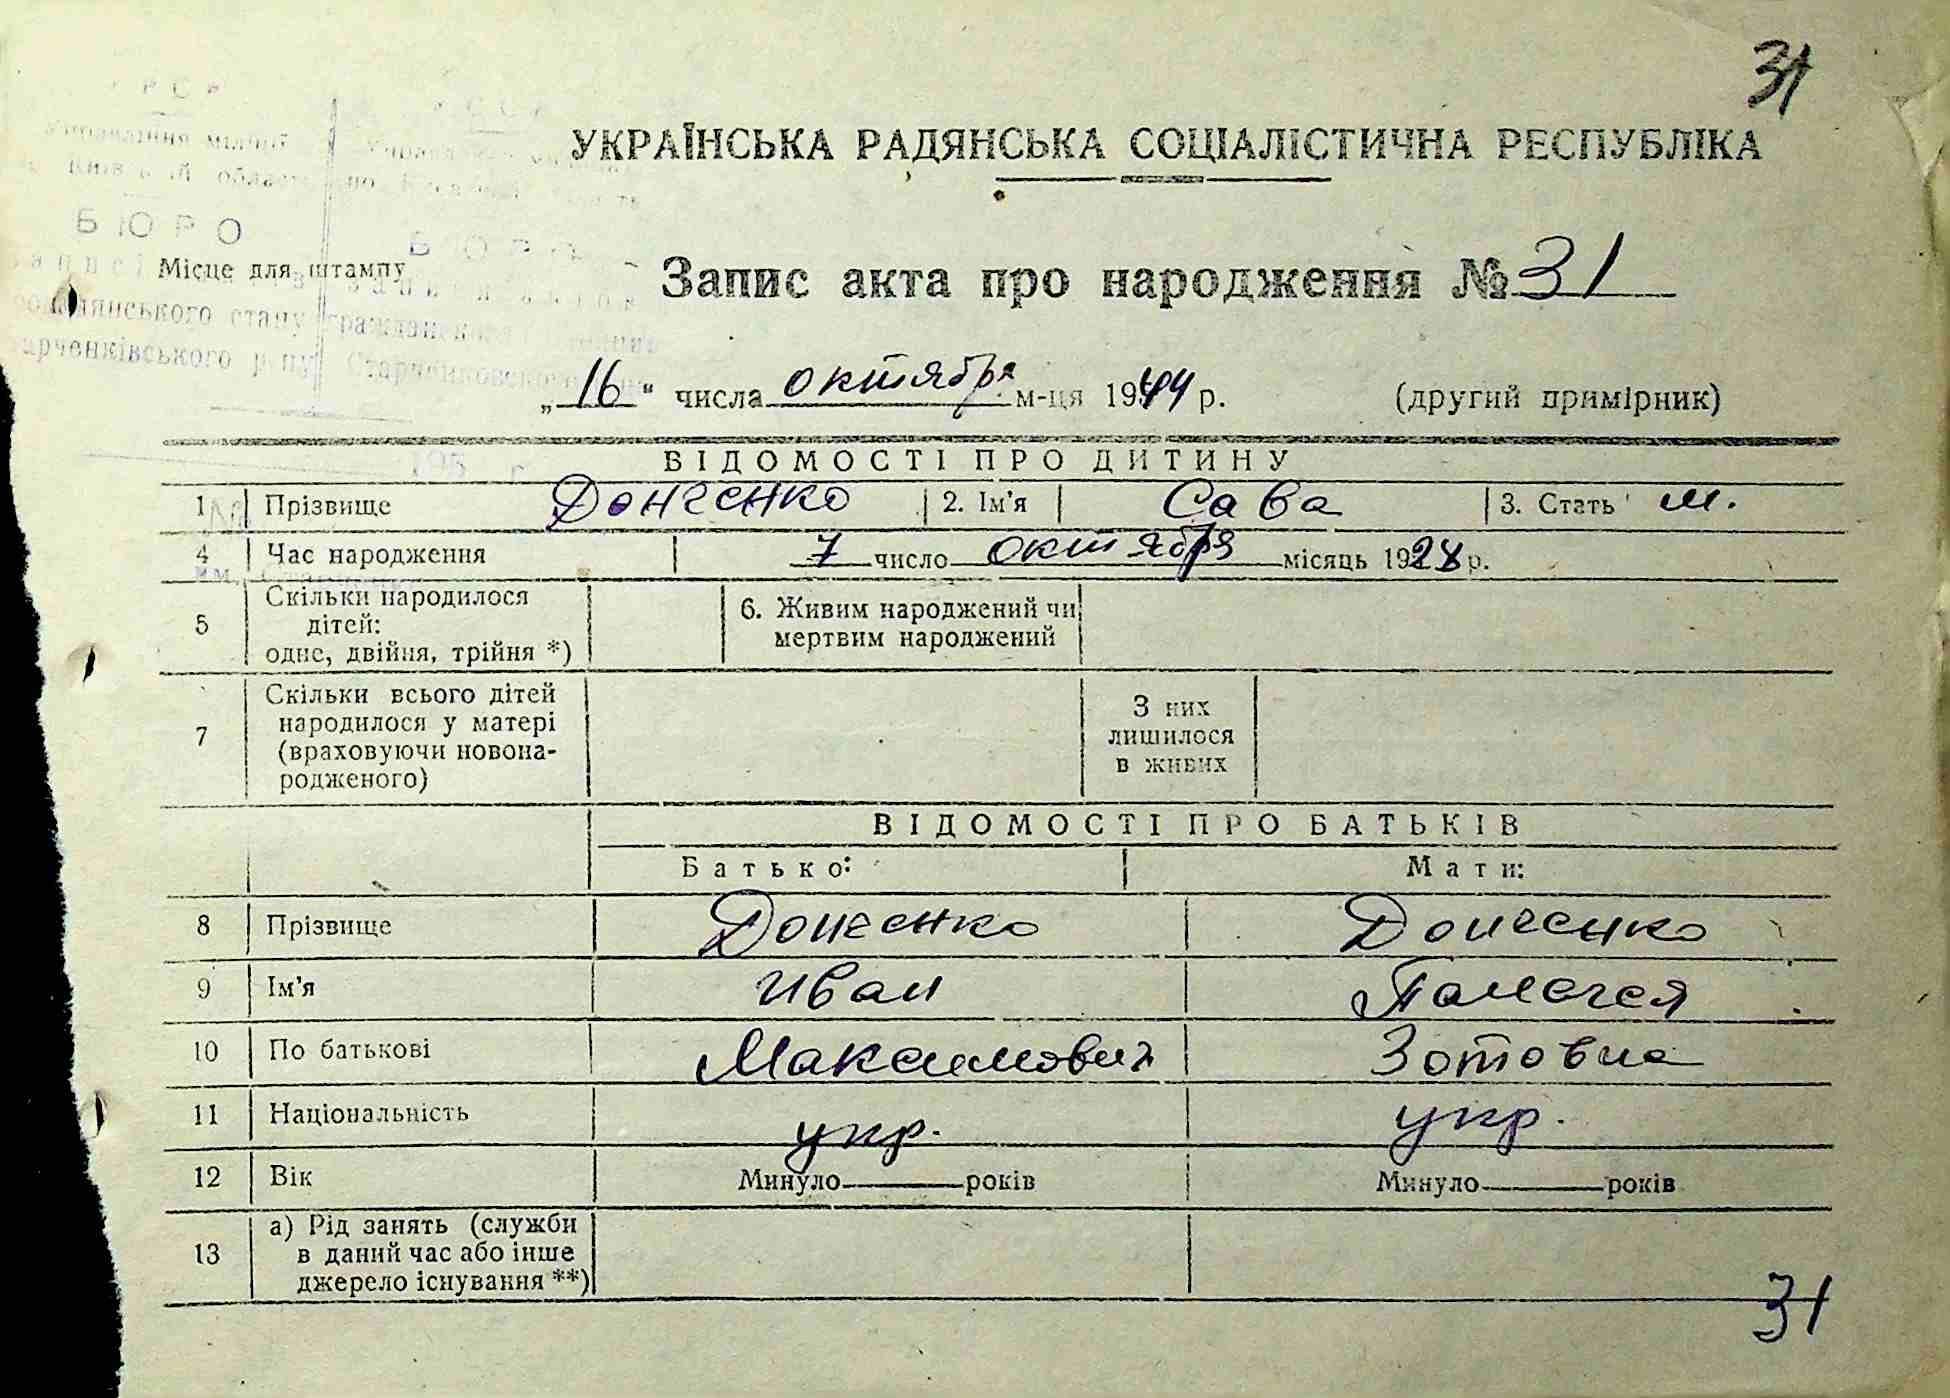 31
УКРАЇНСЬКА РАДЯНСЬКА СОЦІАЛІСТИЧНА РЕСПУБЛІКА
БЮРО
Місце для штампу
Запис акта про народження № 31
„16" числа октября м-ця 1944 р. (другий примірник)
ВІДОМОСТІ ПРО ДИТИНУ
1 Прізвище Донченко 2. Ім'я Сава 3. Стать м.
4 Час народження 7 число октября місяць 1928 р.
5 Скільки народилося
дітей:
одне, двійня, трійня *)
6. Живим народжений чи
мертвим народжений
7 Скільки всього дітей
народилося у матері
(враховуючи новона-
родженого)
З них
лишилося
в живих
ВІДОМОСТІ ПРО БАТЬКІВ
Батько: Мати:
8 Прізвище Донченко Донченко
9 Ім'я Иван Палагея
10 По батькові Максимович Зотовна
11 Національність укр. укр.
12 Вік Минуло років Минуло років
13 а) Рід занять (служби
в даний час або інше
джерело існування **)
31